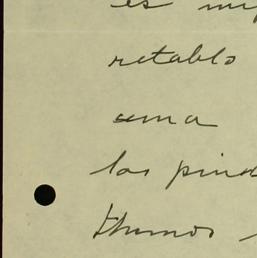 es muy
retablo
uma
los pind
thumos